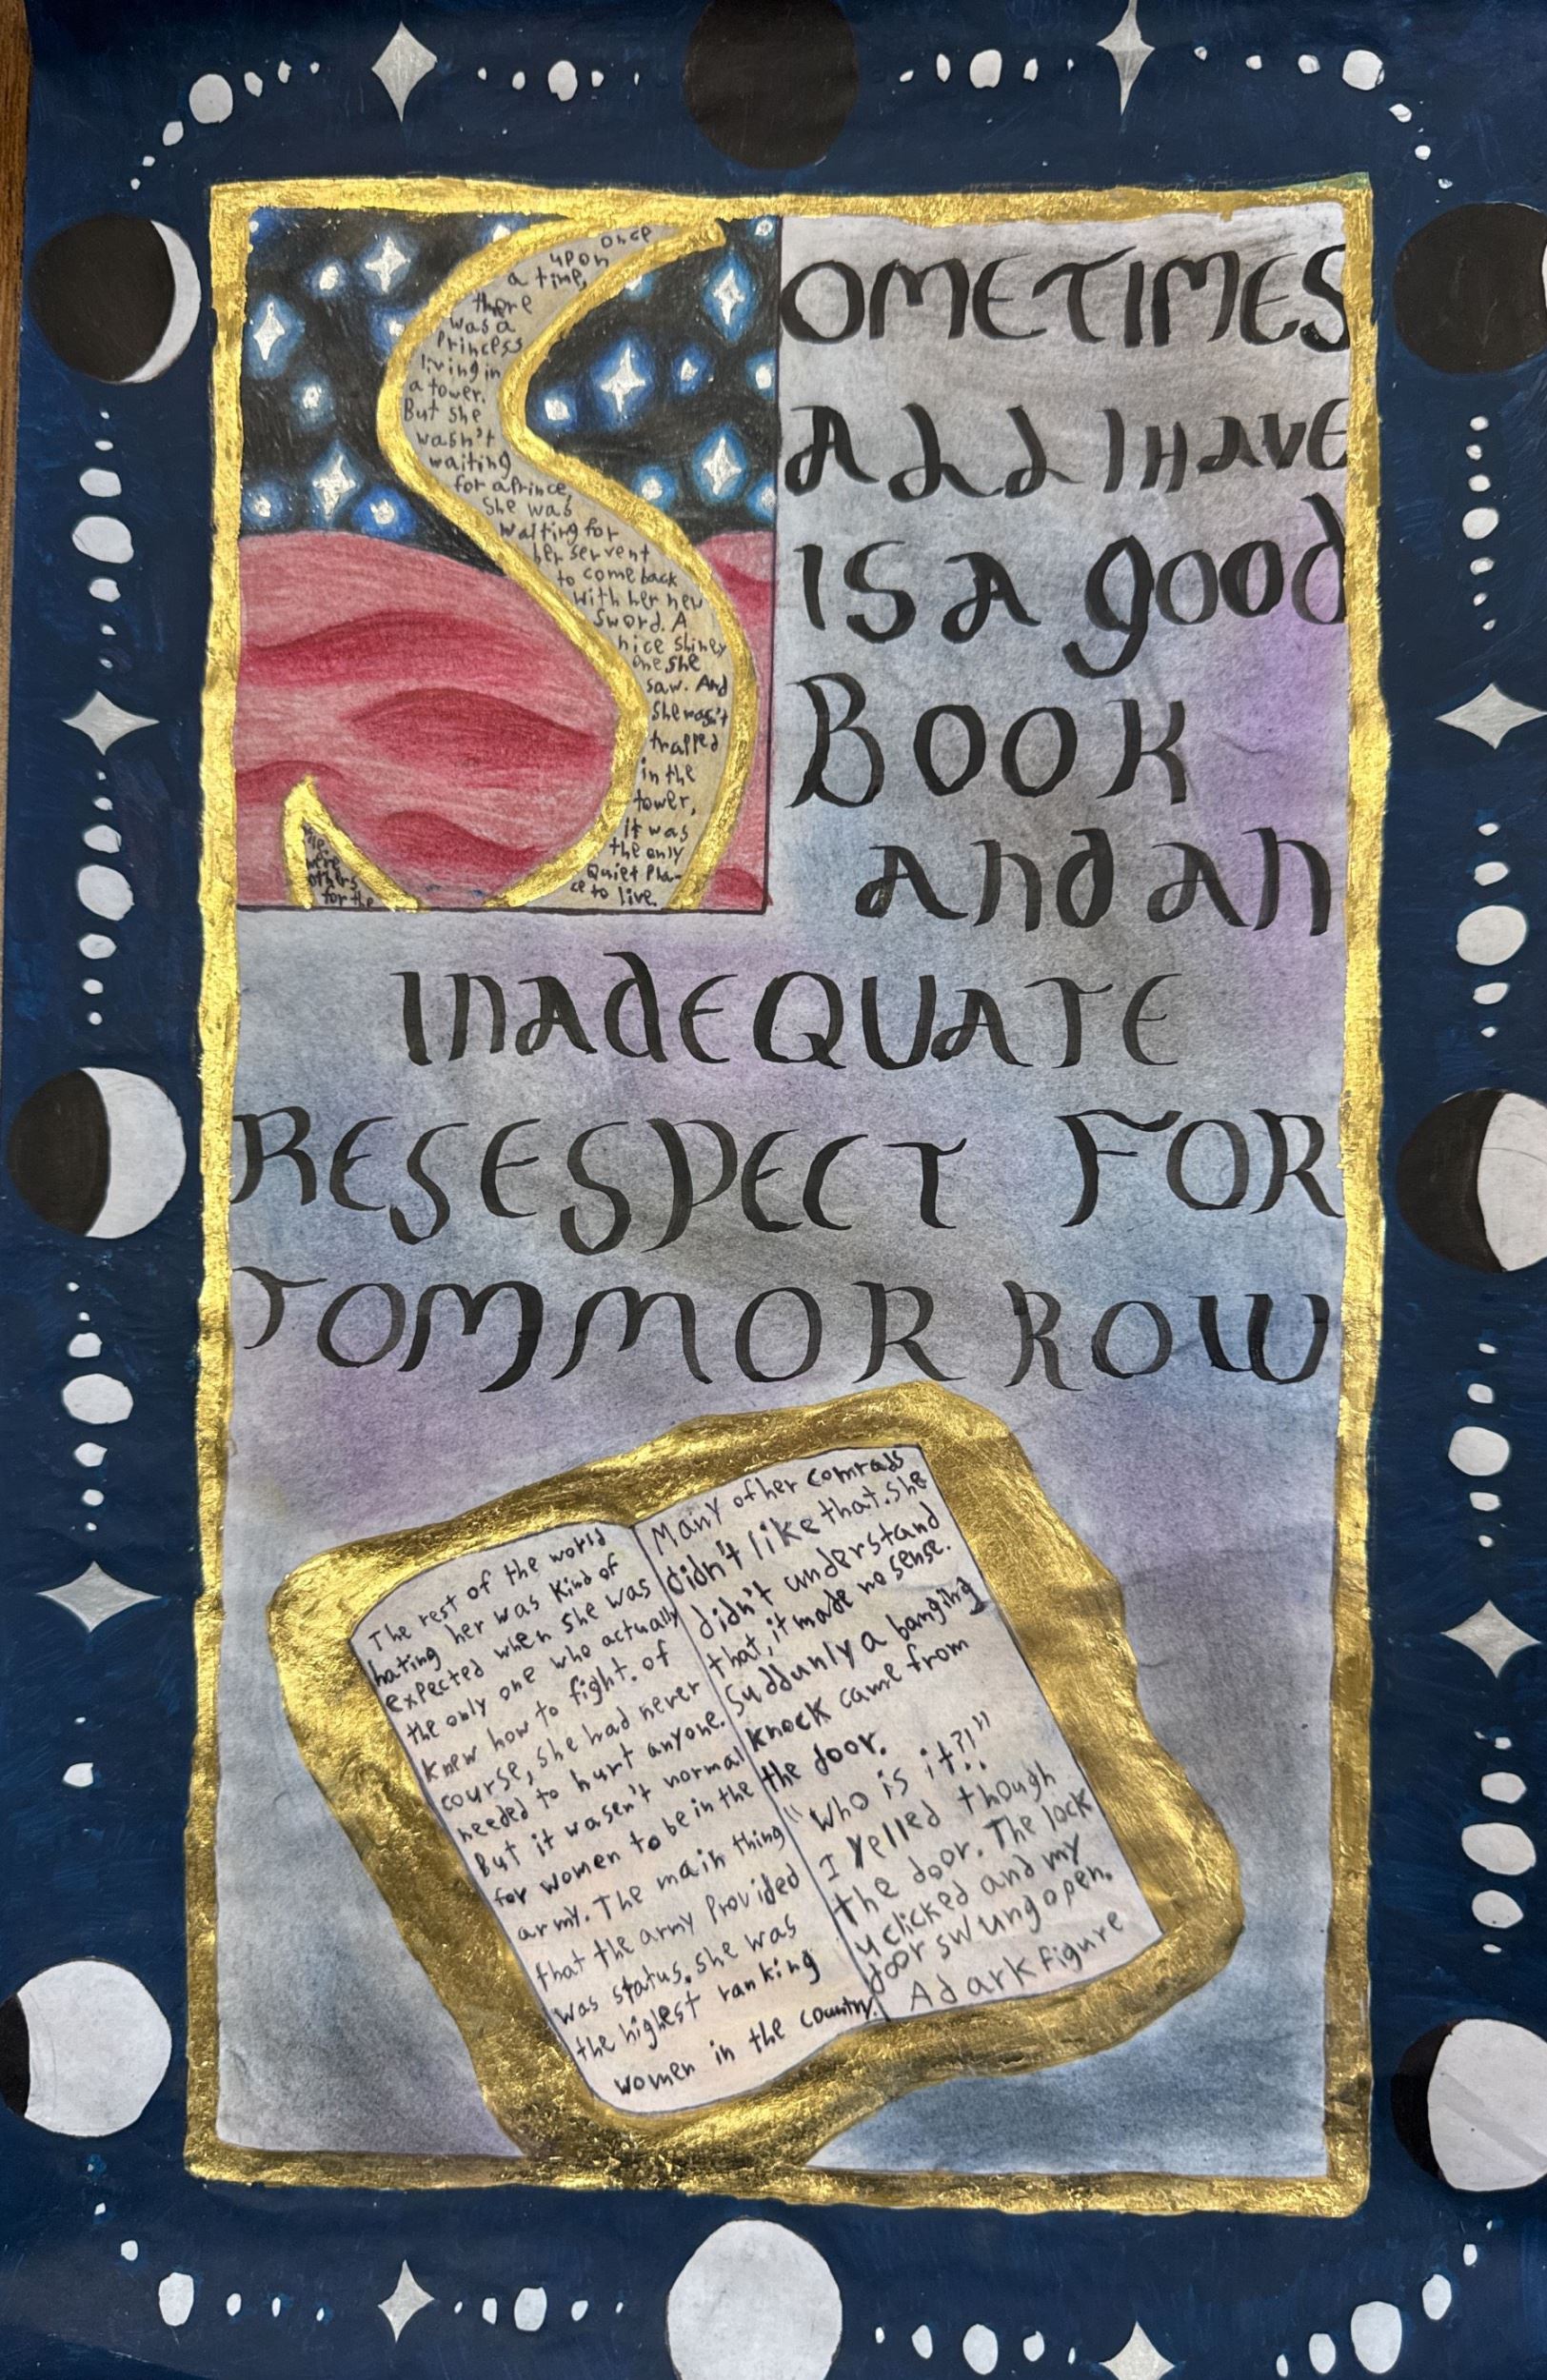 SOMETIMES
ALL I HAVE
IS A gOOd
BOOK
ANd AN
INAdEQUATE
RESESPECT FOR
TOMMORROW
once
upon
a time,
there
was a
Princess
living in
a tower.
But she
wasn't
waiting
for a Prince,
She was
waiting for
her servent
to come back
with her new
sword. A
nice shiney
one she
saw. And
she wasn't
trapped
in the
tower,
it was
the only
Quiet Pla-
ce to live.
were
others
for the
The rest of the world
hating her was kind of
expected when she was
the only one who actually
knew how to fight. of
course, she had never
needed to hurt anyone.
But it wasen't normal
for women to be in the
army. The main thing
that the army Provided
was status. she was
the highest ranking
women in the country.
Many of her comrads
didn't like that. she
didn't understand
that, it made no sense.
Suddunly a banging
knock came from
the door.
"Who is it?!"
I yelled though
the door. The lock
uclicked and my
door swung open.
A dark figure